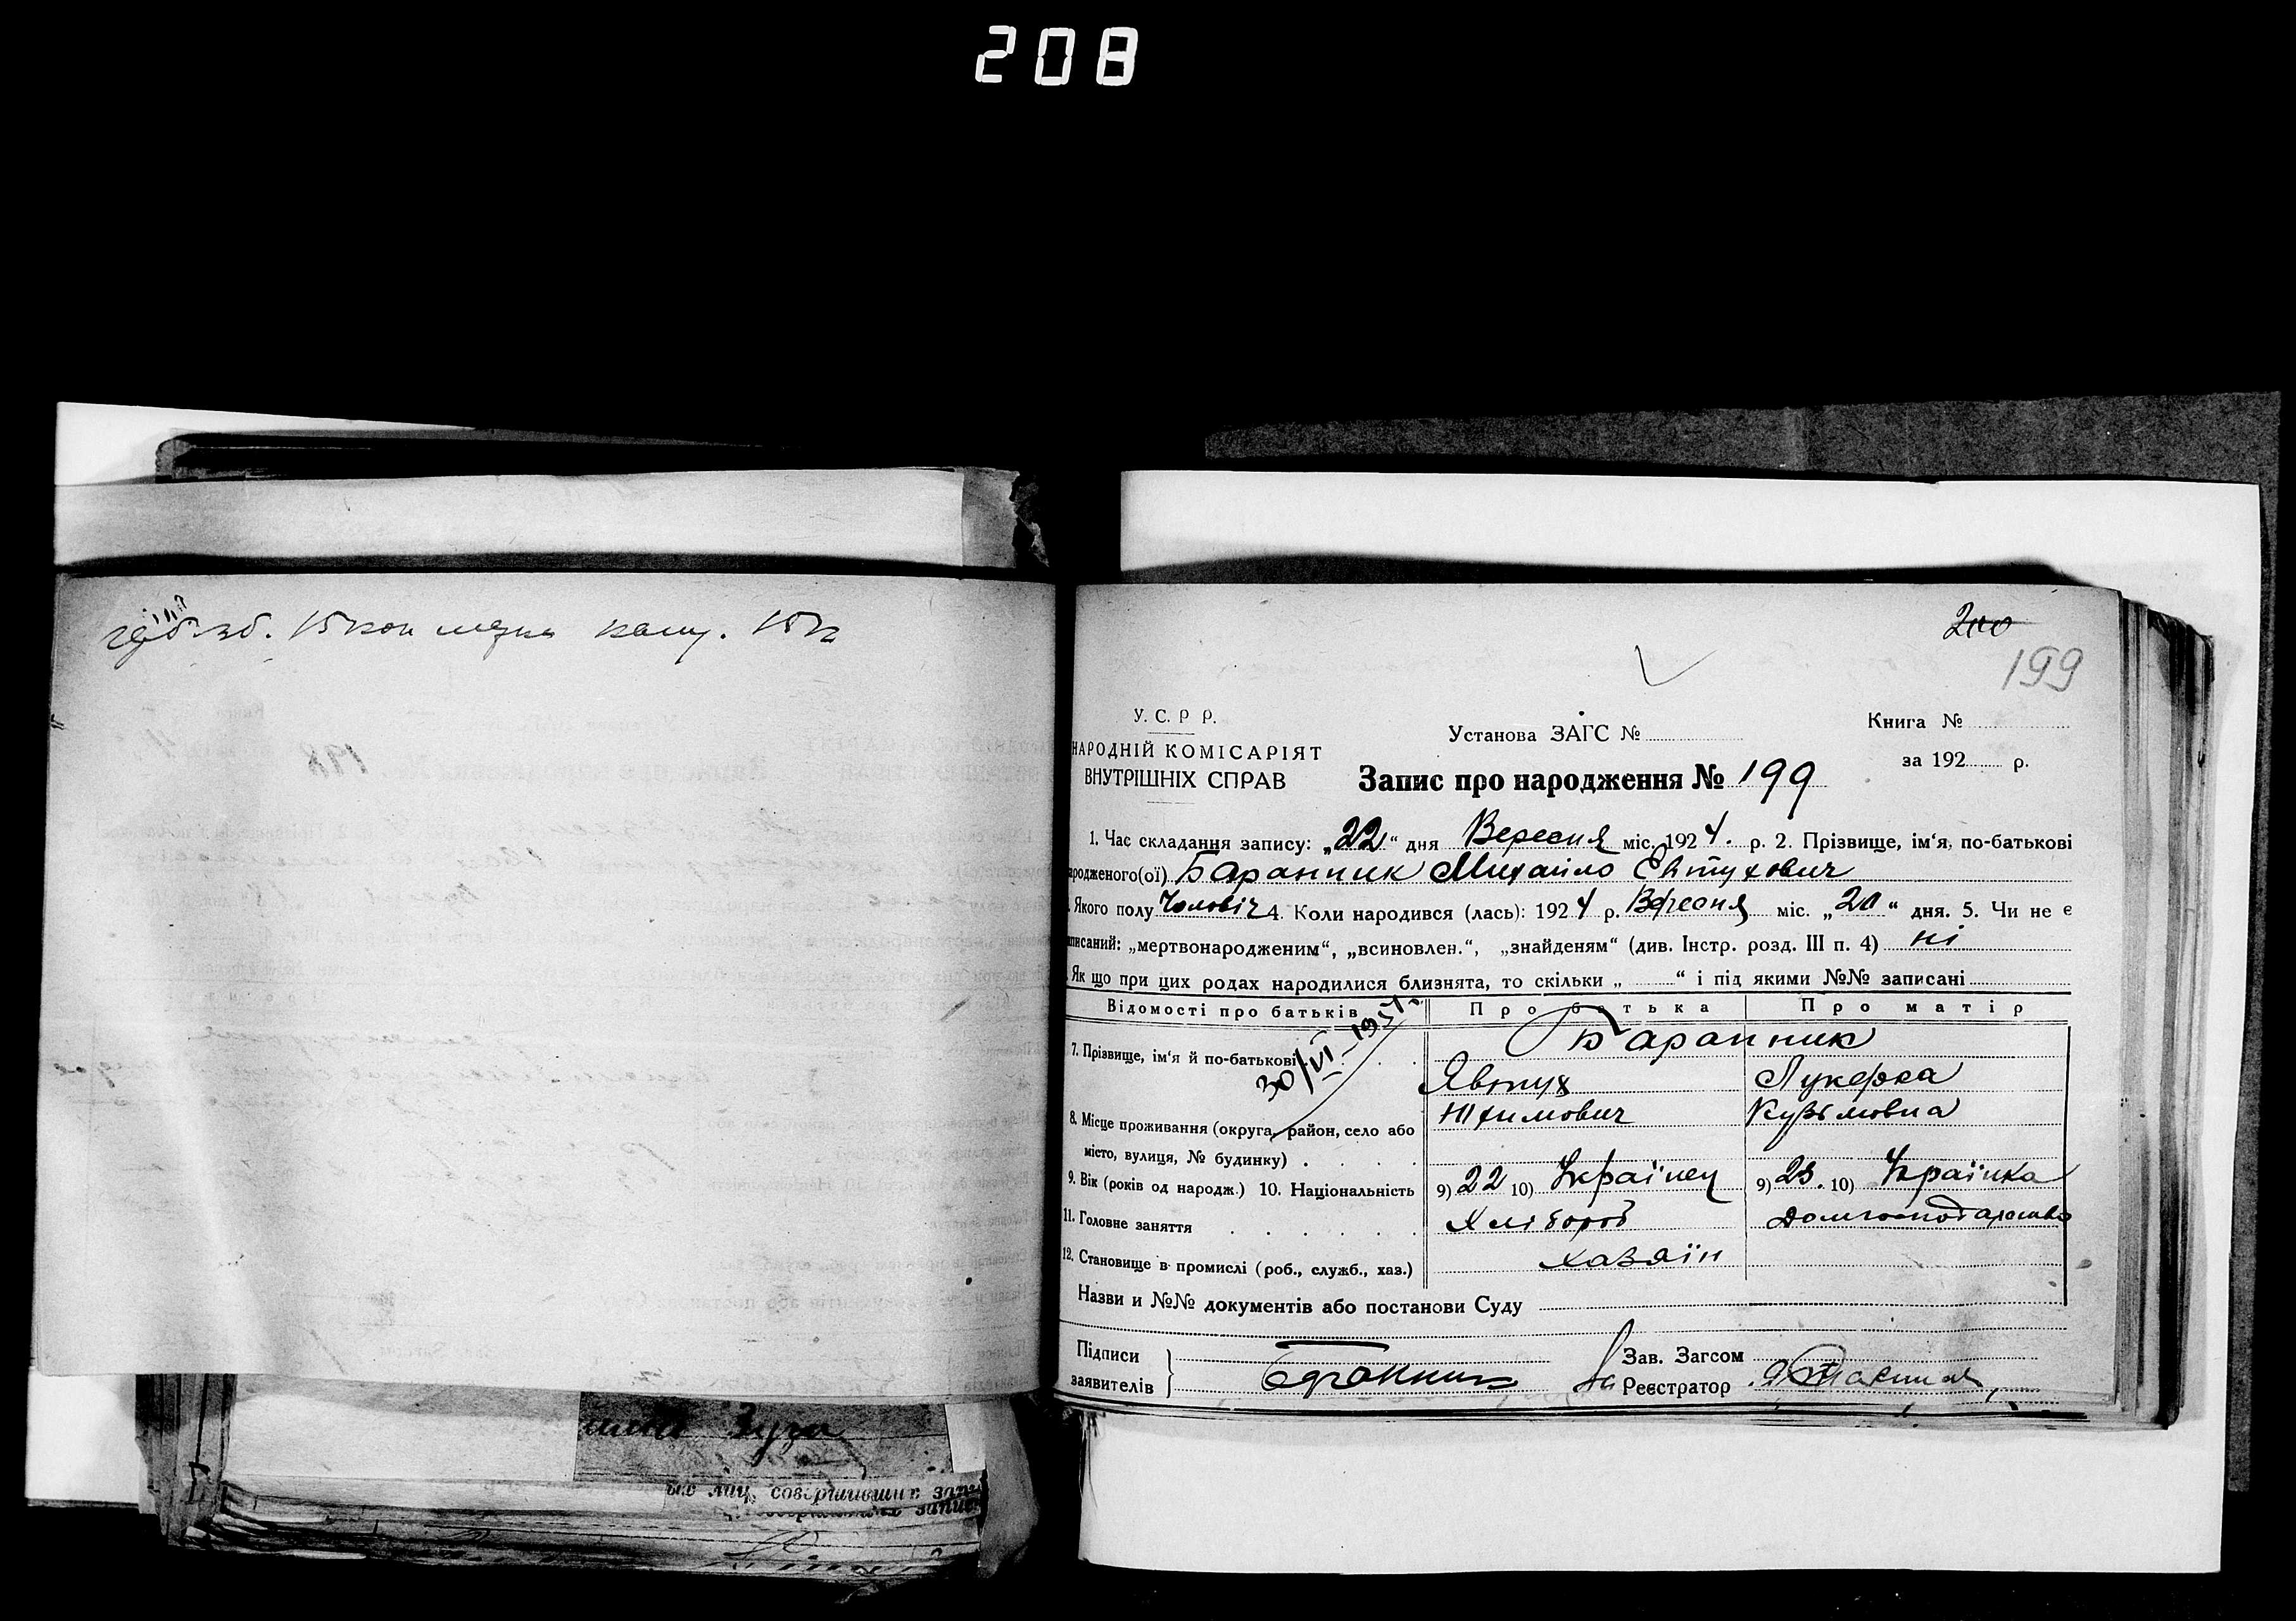 208
200
199
У. С. Р. Р.
НАРОДНІЙ КОМІСАРІЯТ
ВНУТРІШНІХ СПРАВ
Установа ЗАГС №
Книга №
за 192 р.
Запис про народження № 199
1. Час складання запису: „22“ дня Вересня міс. 1924. р. 2. Прізвище, ім‘я, по-батькові
народженого(ої) Баранник Михайло Евтухович
Якого полу Чоловіч 4. Коли народився (лась): 1924 р. Вересня міс. „20“ дня. 5. Чи не є
записаний: „мертвонародженим“, „всиновлен.“, „знайденям“ (див. Інстр. розд. III п. 4) ні
Як що при цих родах народилися близнята, то скільки „ “ і під якими №№ записані
Відомості про батьків Про батька Про матір
30/VI-1951.
7. Прізвище, ім‘я й по-батькові Баранник
Явтух Лукерка
Юхимович Кузьмовна
8. Місце проживання (округа, район, село або
місто, вулиця, № будинку)
9. Вік (років од народж.) 10. Національність 9) 22 10) Українец 9) 23. 10) Українка
11. Головне заняття Хлібороб Домгосподарство
12. Становище в промислі (роб., служб., хаз.) хазяїн
Назви и №№ документів або постанови Суду
Підписи
заявителів Баранник
Зав. Загсом
Реєстратор
Зуза
их лиц, совершивших запи